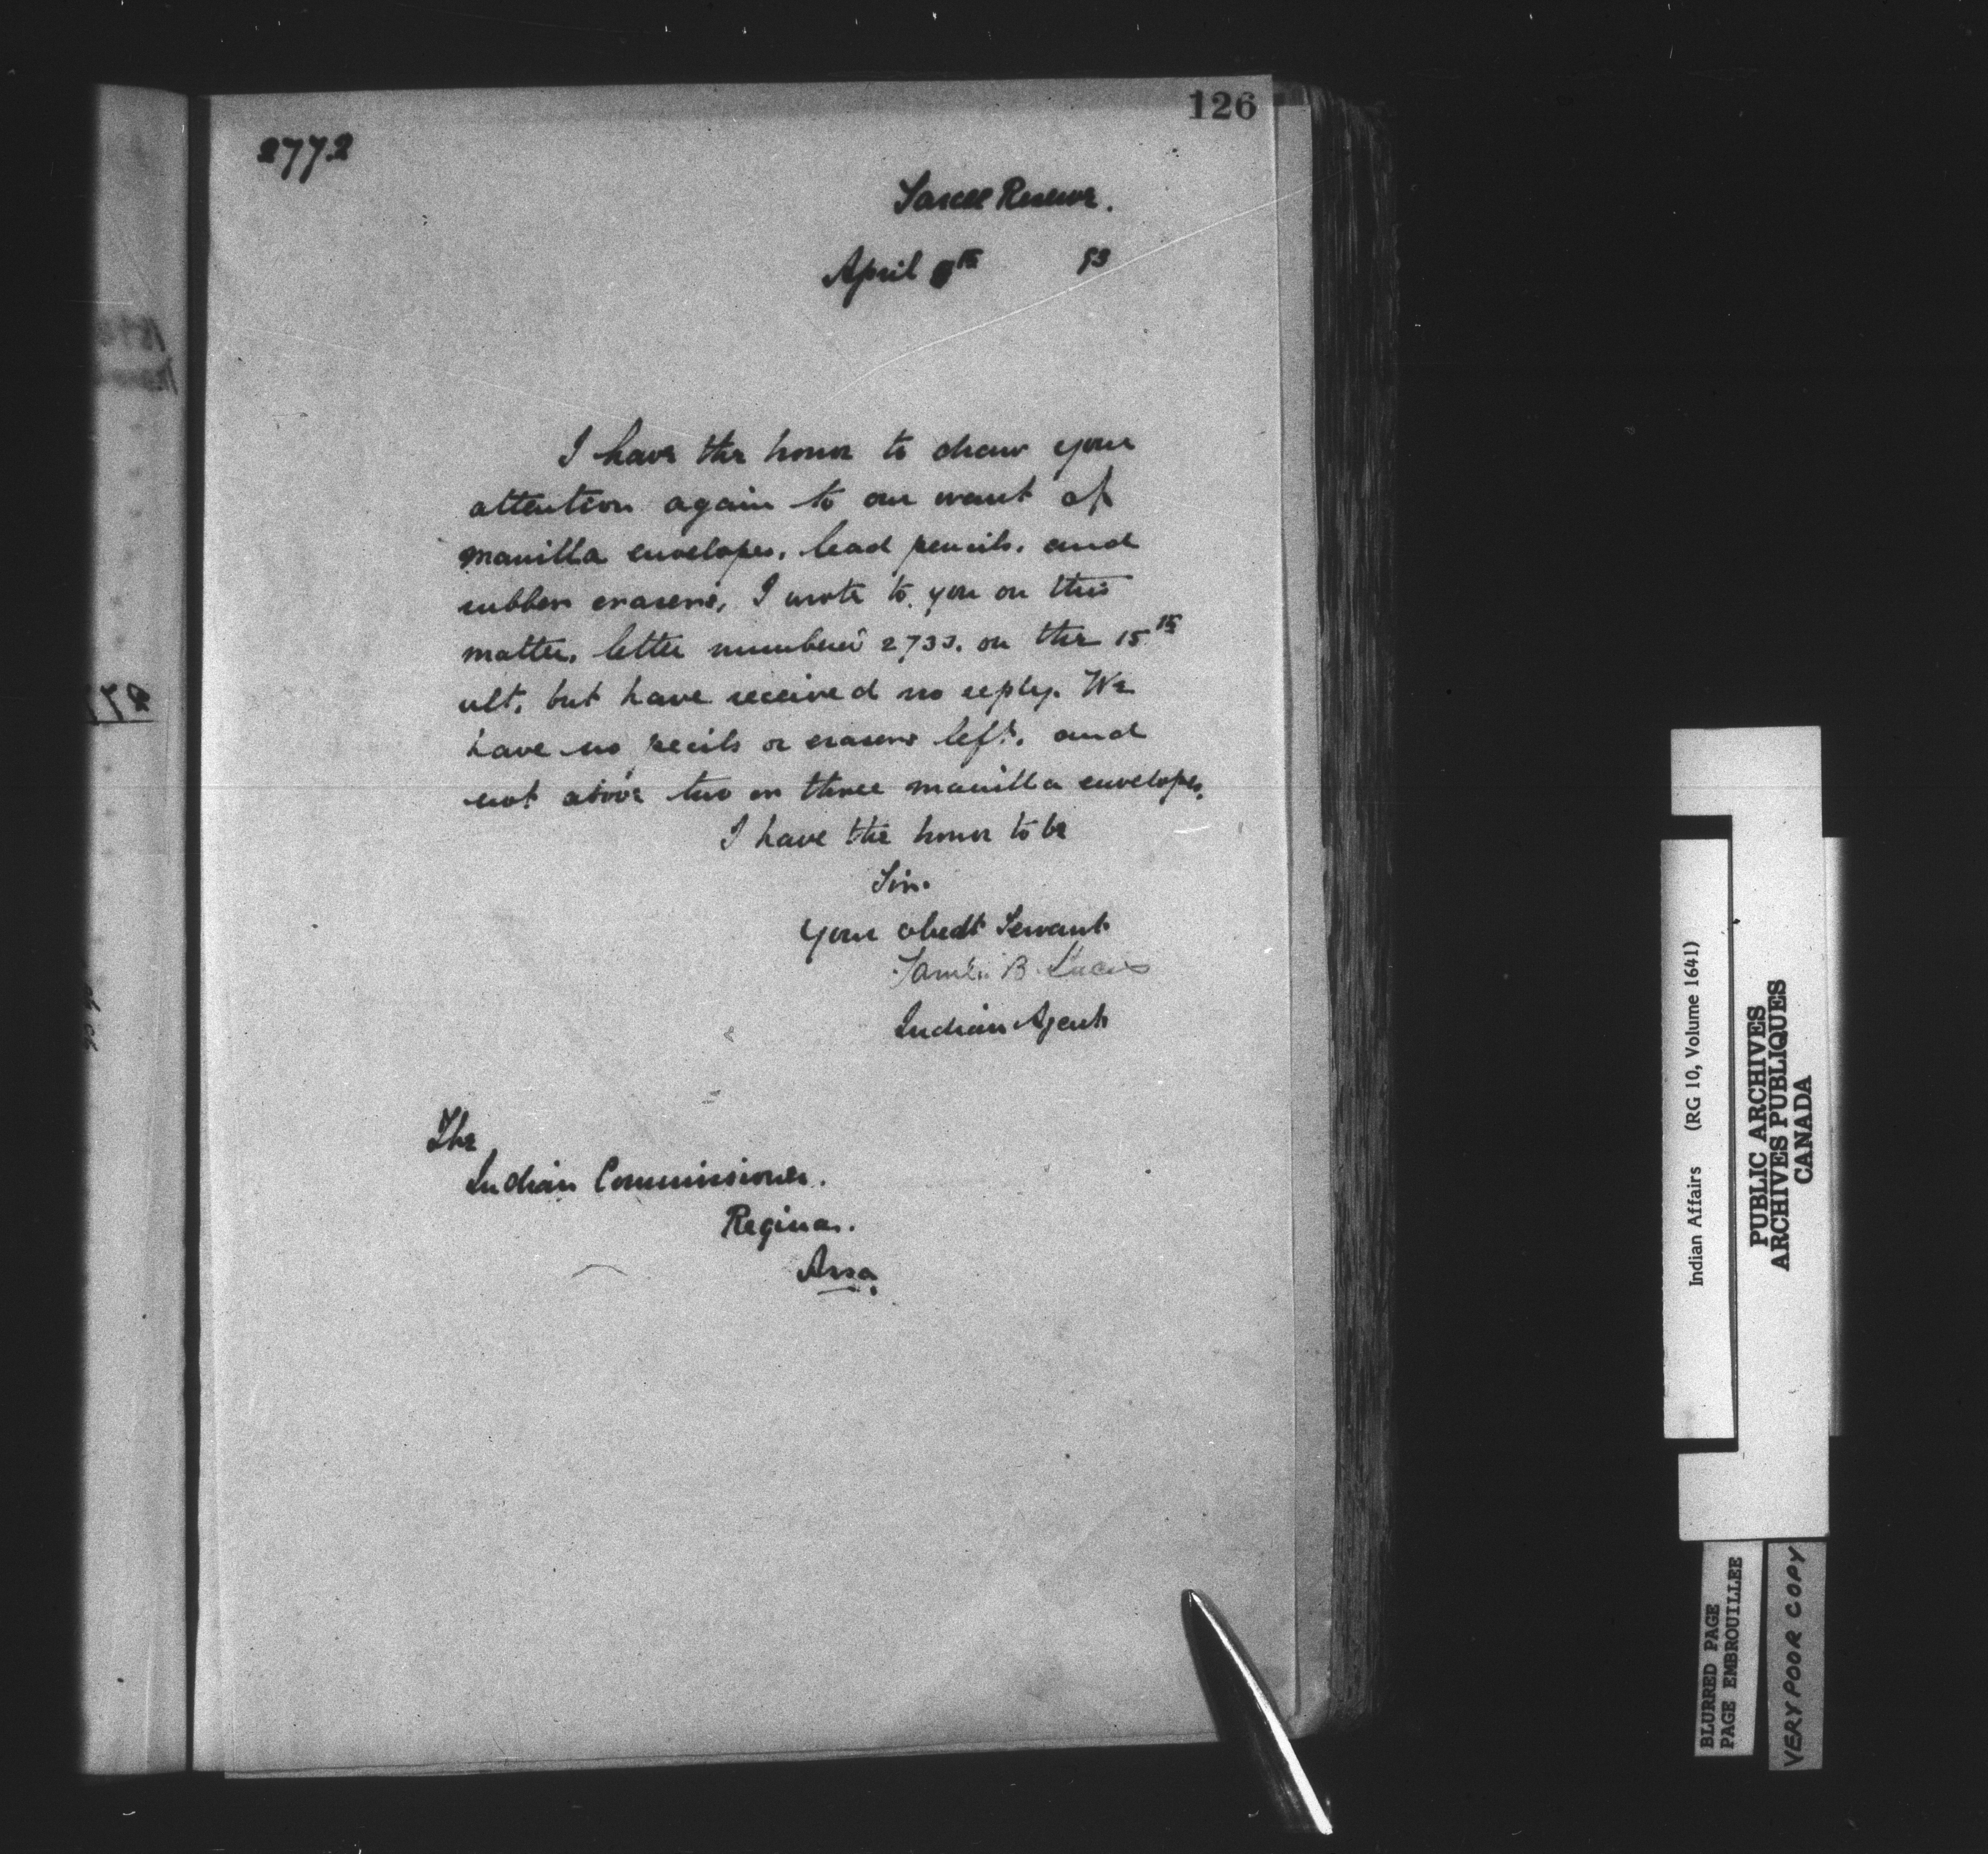 126
2772
Sarcee Reserve.
April th 93
I have the honor to draw your
attention again to our want of
manilla envelopes, lead pencils, and
rubber erasers, I wrote to you on this
matter, letter numbered 2733, on the 15th
ult, but have received no reply. We
have no pecils or erasers left, and
not above two or three manilla envelopes.
I have the honor to be
Sir.
Your obedt Servant
Samuel B. Lucas
Indian Agent
The
Indian Commissioner.
Regina.
Assa.
Indian Affairs (RG 10, Volume 1641)
PUBLIC ARCHIVES
ARCHIVES PUBLIQUES
CANADA
BLURRED PAGE
PAGE EMBROUILLEE
VERY POOR COPY